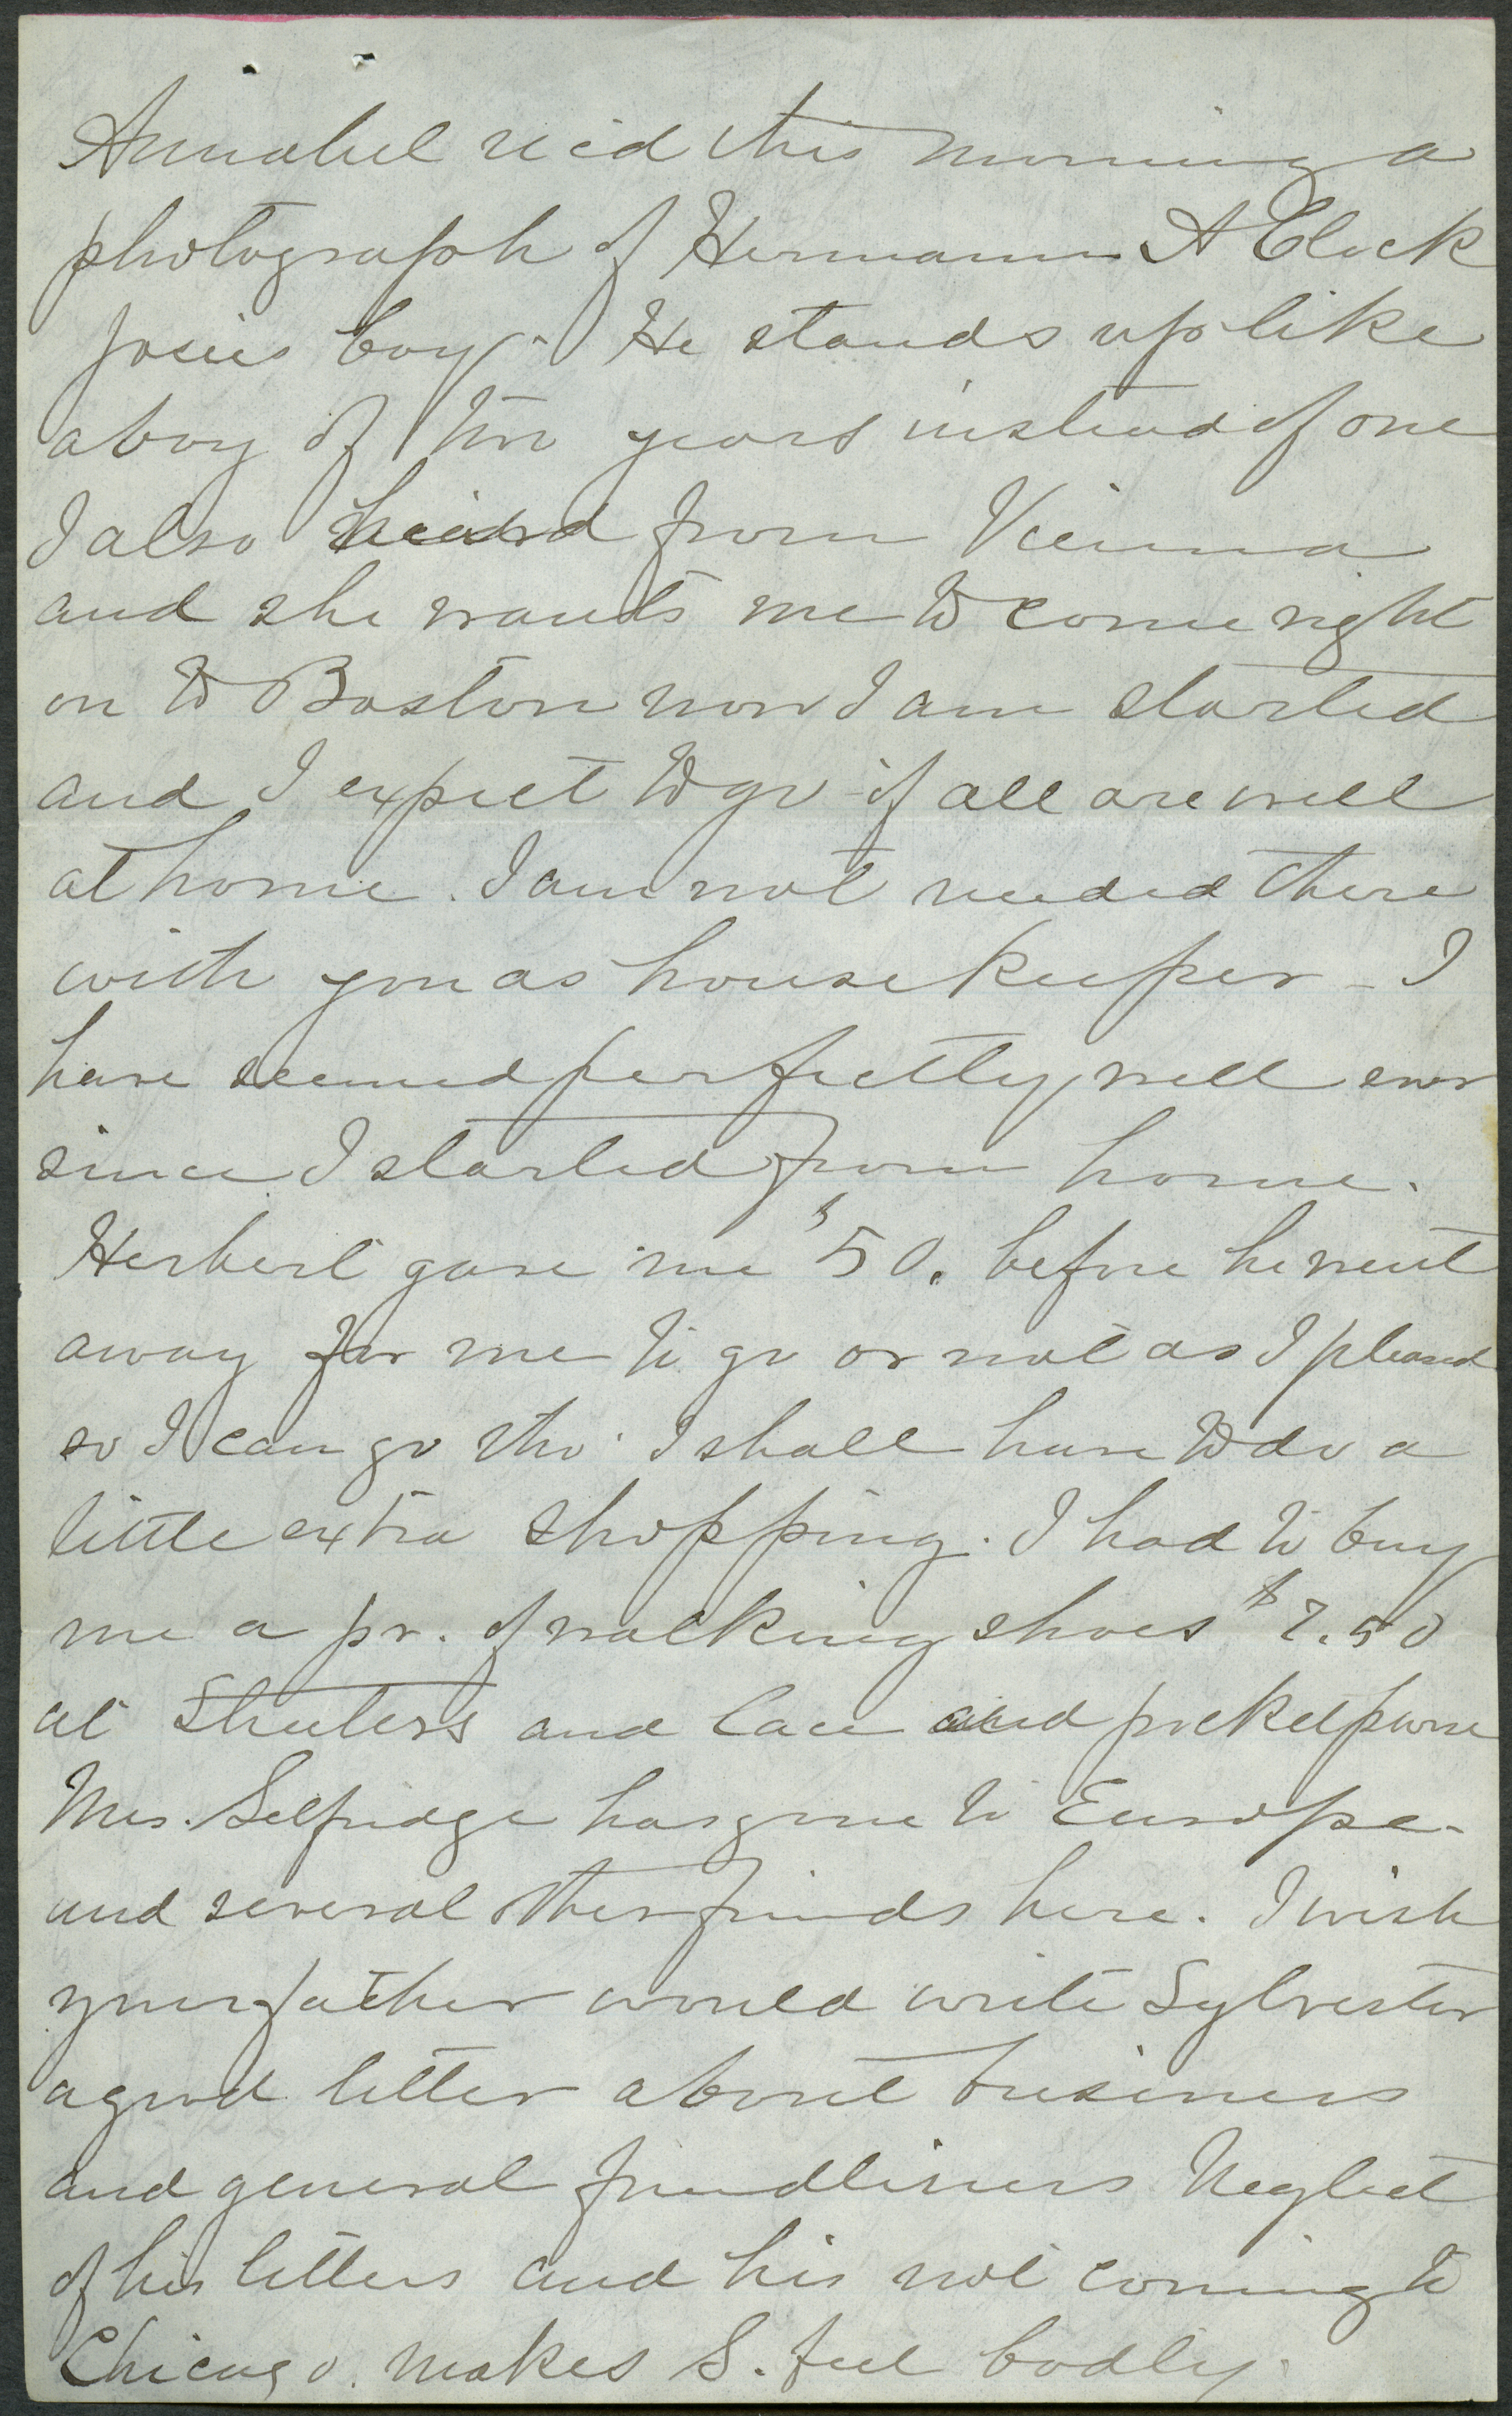 Annabel rec'd this morning a
photograph of Hermann A Cleck
Josies boy - He stands up like
a boy of two years instead of one
I also heard from Vienna
and she wants me to come right
on to Boston now I am started
and I expect to go if all are well
at home. I am not needed there
with you as housekeeper - I
have seemed perfectly well ever
since I started from home.
Herbert gave me $50. before he went
away for me to go or not as I pleased
so I can go tho' I shall have to do a
little extra shopping. I had to buy
me a pr. of walking shoes $2.50
at and lace and pocket purse
Mrs. Selfridge has gone to Europe -
and several other friends here. I wish
your father would write Sylvester
a good letter about business
and general friendliness Neglect
of his letters and his not coming to
Chicago. makes S. feel badly.